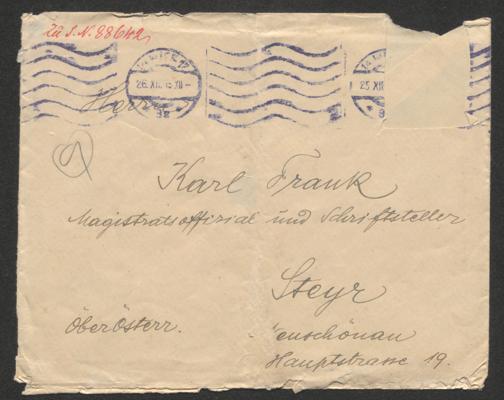 Zu I.N. 88642
14 WIEN 117
26. XII. 15 XII -
* 3a
25 XII
Herrn
Karl Frank
Magistratsoffizial und Schriftsteller
Steyr
Oberösterr.
enschönau
Hauptstrasse 19.